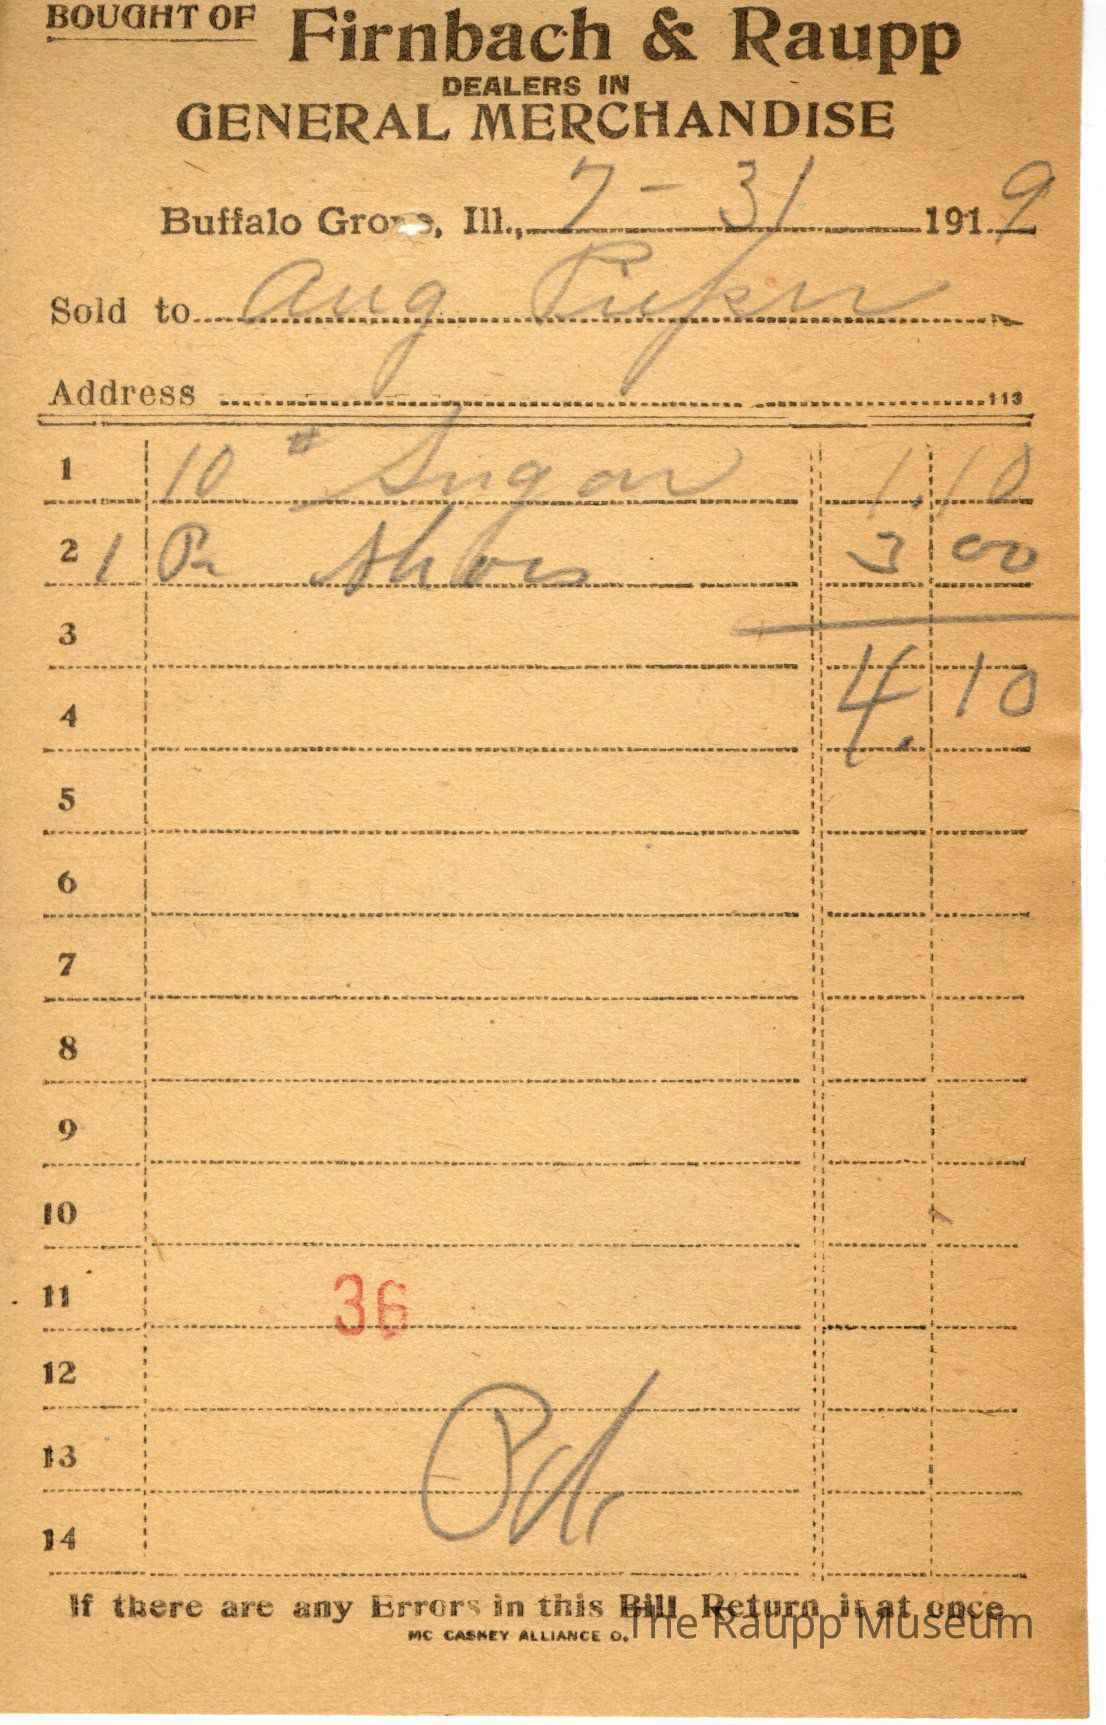 BOUGHT OF Firnbach & Raupp
DEALERS IN
GENERAL MERCHANDISE
Buffalo Grove, Ill., 7-31 1919
Sold to Aug
Address 113
1 10 # Sugar 1.10
2 1 Pr Shoes 3 00
3
4 4.10
5
6
7
8
9
10
11 36
12
13 Pd.
14
If there are any Errors in this Bill Return it at once
MC CASKEY ALLIANCE O.
The Raupp Museum